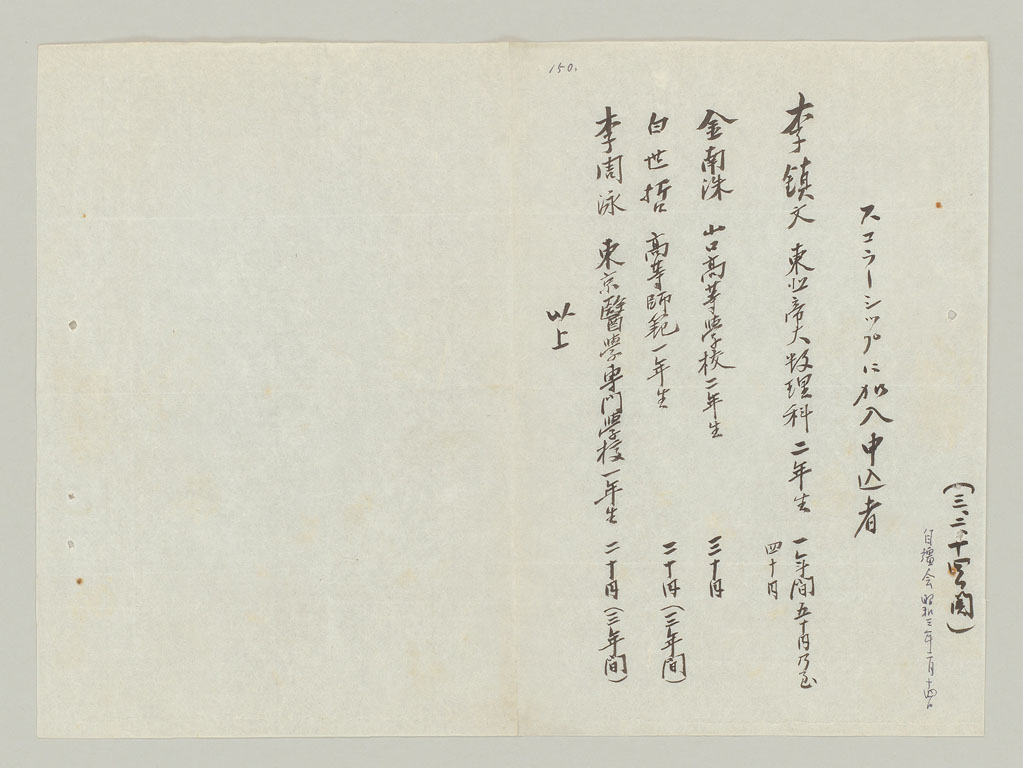 150.
(三、二、十四関)
自擅会 昭和三年二月十四日
スコラーシップに加入申込者
李鎮文 東北帝大数理科二年生 一年間五十円乃至
四十円
金南洙 山口高等學校二年生 三十円
白世哲 高等師範一年生 二十円(三年間)
李周泳 東京醫學専門學校一年生 二十円(三年間)
以上